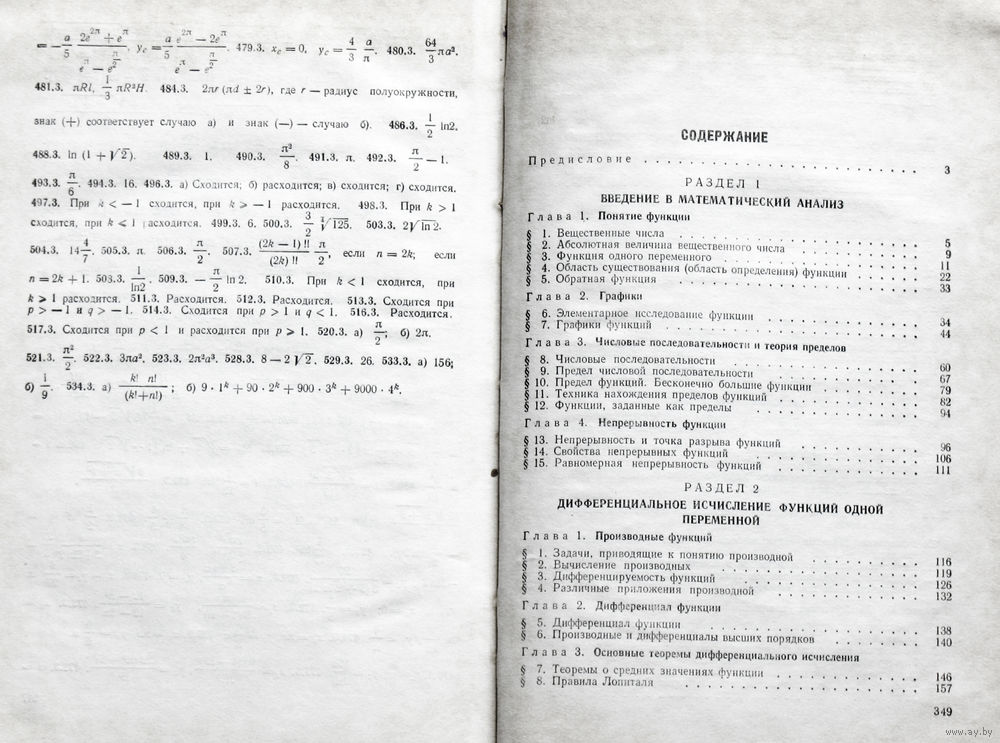 = − a/5 · (2e^{2π} + e^π)/(e^π − e^{π/2}), y_c = a/5 · (e^{2π} − 2e^π)/(e^π − e^{π/2}). 479.3. x_c = 0, y_c = 4/3 a/π. 480.3. 64/3 πa³.
481.3. πRl, 1/3 πR²H. 484.3. 2πr (πd ± 2r), где r — радиус полуокружности,
знак (+) соответствует случаю а) и знак (—) — случаю б). 486.3. 1/2 ln2.
488.3. ln (1 + √2). 489.3. 1. 490.3. π²/8. 491.3. π. 492.3. π/2 — 1.
493.3. π/6. 494.3. 16. 496.3. а) Сходится; б) расходится; в) сходится; г) сходится.
497.3. При k < — 1 сходится, при k ⩾ — 1 расходится. 498.3. При k > 1
сходится, при k ⩽ 1 расходится. 499.3. 6. 500.3. 3/2 ∛125. 503.3. 2√ln 2.
504.3. 14 4/7. 505.3. π. 506.3. π/2. 507.3. (2k — 1)!!/(2k)!! π/2, если n = 2k; если
n = 2k + 1. 503.3. 1/ln2. 509.3. — π/2 ln 2. 510.3. При k < 1 сходится, при
k ⩾ 1 расходится. 511.3. Расходится. 512.3. Расходится. 513.3. Сходится при
p > — 1 и q > — 1. 514.3. Сходится при p > 1 и q < 1. 516.3. Расходится.
517.3. Сходится при p < 1 и расходится при p ⩾ 1. 520.3. а) π/2; б) 2π.
521.3. π²/2. 522.3. 3πa². 523.3. 2π²a³. 528.3. 8 — 2√2. 529.3. 26. 533.3. а) 156;
б) 1/9. 534.3. а) k! n!/(k!+n!); б) 9 · 1ᵏ + 90 · 2ᵏ + 900 · 3ᵏ + 9000 · 4ᵏ.
СОДЕРЖАНИЕ
Предисловие . . . . . . . . . . 3
РАЗДЕЛ 1
ВВЕДЕНИЕ В МАТЕМАТИЧЕСКИЙ АНАЛИЗ
Глава 1. Понятие функции
§ 1. Вещественные числа . . . . . 5
§ 2. Абсолютная величина вещественного числа . . . . . 9
§ 3. Функция одного переменного . . . . . 11
§ 4. Область существования (область определения) функции . . . . . 22
§ 5. Обратная функция . . . . . 33
Глава 2. Графики
§ 6. Элементарное исследование функции . . . . . 34
§ 7. Графики функций . . . . . 44
Глава 3. Числовые последовательности и теория пределов
§ 8. Числовые последовательности . . . . . 60
§ 9. Предел числовой последовательности . . . . . 67
§ 10. Предел функций. Бесконечно большие функции . . . . . 79
§ 11. Техника нахождения пределов функций . . . . . 82
§ 12. Функции, заданные как пределы . . . . . 94
Глава 4. Непрерывность функции
§ 13. Непрерывность и точка разрыва функций . . . . . 96
§ 14. Свойства непрерывных функций . . . . . 106
§ 15. Равномерная непрерывность функций . . . . . 111
РАЗДЕЛ 2
ДИФФЕРЕНЦИАЛЬНОЕ ИСЧИСЛЕНИЕ ФУНКЦИЙ ОДНОЙ
ПЕРЕМЕННОЙ
Глава 1. Производные функций
§ 1. Задачи, приводящие к понятию производной . . . . . 116
§ 2. Вычисление производных . . . . . 119
§ 3. Дифференцируемость функций . . . . . 126
§ 4. Различные приложения производной . . . . . 132
Глава 2. Дифференциал функции
§ 5. Дифференциал функции . . . . . 138
§ 6. Производные и дифференциалы высших порядков . . . . . 140
Глава 3. Основные теоремы дифференциального исчисления
§ 7. Теоремы о средних значениях функции . . . . . 146
§ 8. Правила Лопиталя . . . . . 157
349
www.ay.by